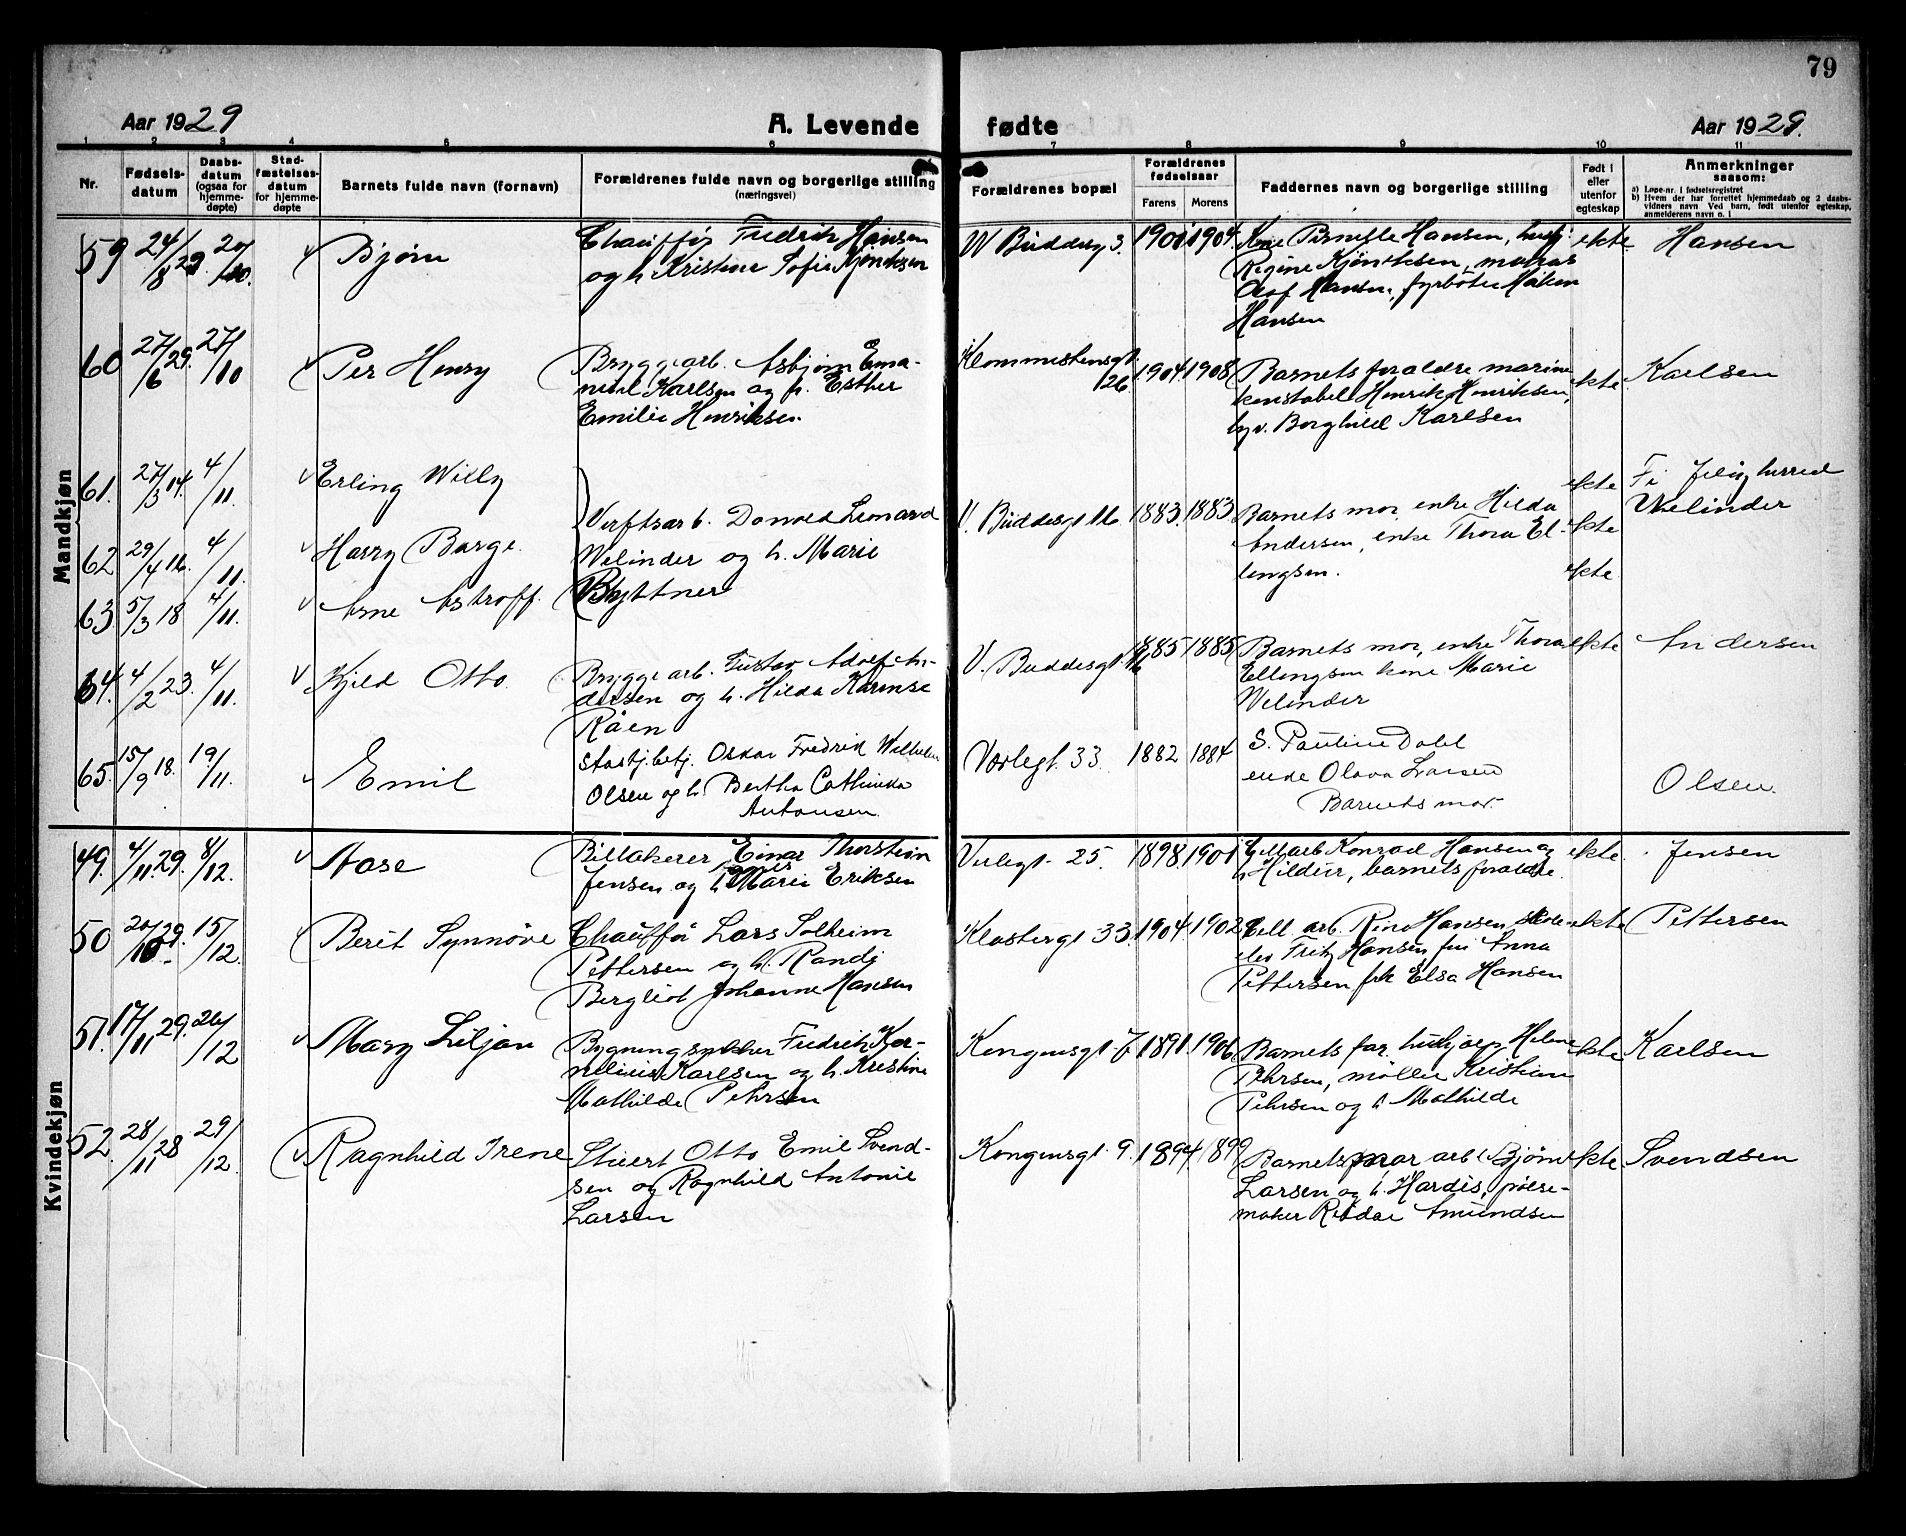 79
Aar 1929
A. Levende
fødte
Aar 1929.
1 2 3 4 5 6 7 8 9 10 11
Nr.
Fødsels-
datum
Daabs-
datum
(ogsaa for
hjemme-
døpte)
Stad-
fæstelses-
datum
for hjemme-
døpte
Barnets fulde navn (fornavn)
Forældrenes fulde navn og borgerlige stilling
(næringsvei)
Forældrenes bopæl
Forældrenes
fødselsaar
Farens
Morens
Faddernes navn og borgerlige stilling
Født i
eller
utenfor
egteskap
Anmerkninger
saasom:
a) Løpe-nr. i fødselsregistret
b) Hvem der har forrettet hjemmedaab og 2 daabs-
vidners navn Ved barn, født utenfor egteskap,
anmelderens navn o. l
Mandkjøn
59 24/8 29. 20/10. Bjørn
Chauffør Fredrik Hansen
og h. Kristine Sofie
W Buddesg 3. 1901 1904.
Hansen,
Regine Kjøniksen,
Olaf Hansen, fyrbøter Håken
Hansen
ekte Hansen
60 27/6 29. 27/10 Per Henry
Bryggearb. Asbjørn Ema-
nuel Karlsen og h. Esther
Emilie Henriksen
26. 1904. 1908.
Barnets foraldre marine
konstabel Henrik Henriksen,
Borghild Karlsen
ekte. Karlsen
61. 27/3 14. 4/11. Erling Willy ekte
62 29/4 16. 4/11. Harry Barge. ekte
63. 5/3 18 4/11. Arne Astroff. ekte
Verftsarb. Donald Leonard
Welinder og h. Marie
Byttner
V. Buddesgt 16. 1883. 1883.
Barnets mor, enke Hilda
Andersen, enke Thora El-
lingsen.
Welinder
64. 4/2 23. 4/11. Kjeld Otto.
Bryggearb. Gustav Adolf An-
dersen og h. Hilda Karense
Råen
V. Buddesgt. 16 1885 1885
Barnets mor, enke Thora
Ellingsen kone Marie
Welinder
ekte Andersen
65. 15/9 18. 19/11. Emil
Oskar Fredrik Wilhelm
Olsen og h. Bertha Cathinka
Antonsen.
Værlegt. 33. 1882 1884
S. Pauline Dahl
enke Olava Larsen
Barnets mor.
Olsen.
Kvindekjøn
49. 4/11. 29. 8/12. Aase
Billakerer Einar Thorstein
Jensen og h. Marie Eriksen
Verlegt. 25. 1898. 1901
Konrad Hansen og
h. Hildur, barnets foraldre.
ekte. Jensen
50 20/10 29. 15/12. Berit Synnøve
Chauffør Lars Solheim
Pettersen og h. Randi
Bergliot Johanne Hansen
Klostergt 33. 1904. 1902
Cell. arb. Rino Hansen,
Fritz Hansen, Anna
Pettersen frk Elsa Hansen
ekte Pettersen
51. 17/11 29. 26/12 Mary Liljan
Fredrik Kor-
nelius Karlsen og h. Kristine
Mathilde Pehrsen
Kongensgt 7 1891. 1906.
Barnets far, Helene
Pehrsen, møller Kristian
Pehrsen og h Mathilde
ekte Karlsen
52. 28/11 28 29/12. Ragnhild Irene
Stuert Otto Emil Svend-
sen og Ragnhild Antonie
Larsen
Kongensgt. 9. 1894. 1899
Barnets mor arb. Bjørn
Larsen og h. Hardis, pølse-
maker Reidar Amundsen
ekte Svendsen